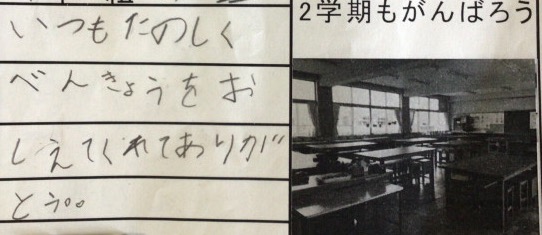 いつもたのしく
べんきょうをお
しえてくれてありが
とう。。
2学期もがんばろう